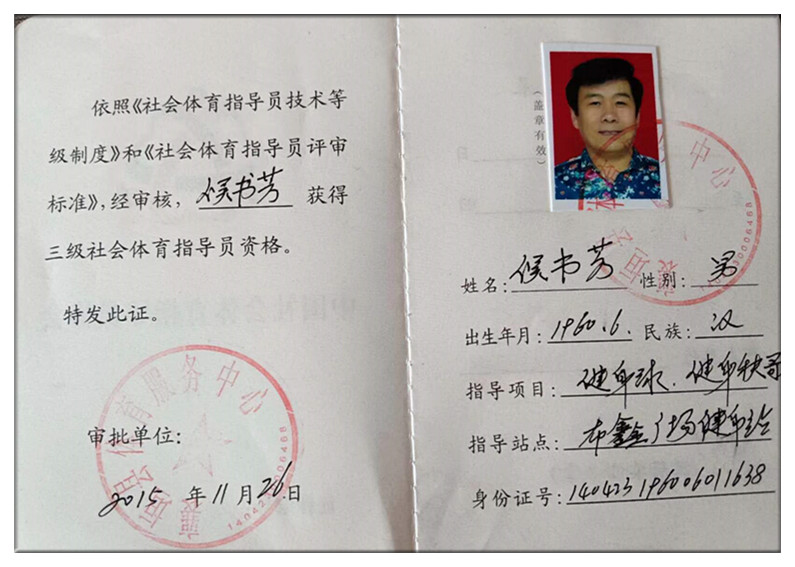 依照《社会体育指导员技术等
级制度》和《社会体育指导员评审
标准》，经审核， 侯书芳 获得
三级社会体育指导员资格。
特发此证。
审批单位：
襄垣县体育服务中心
2015 年 11 月 26 日
（盖章有效）
姓名： 侯书芳 性别： 男
出生年月： 1960.6. 民族： 汉
指导项目： 健身球、健身秧歌
指导站点： 布鑫广场健身站
身份证号： 140423196006011638